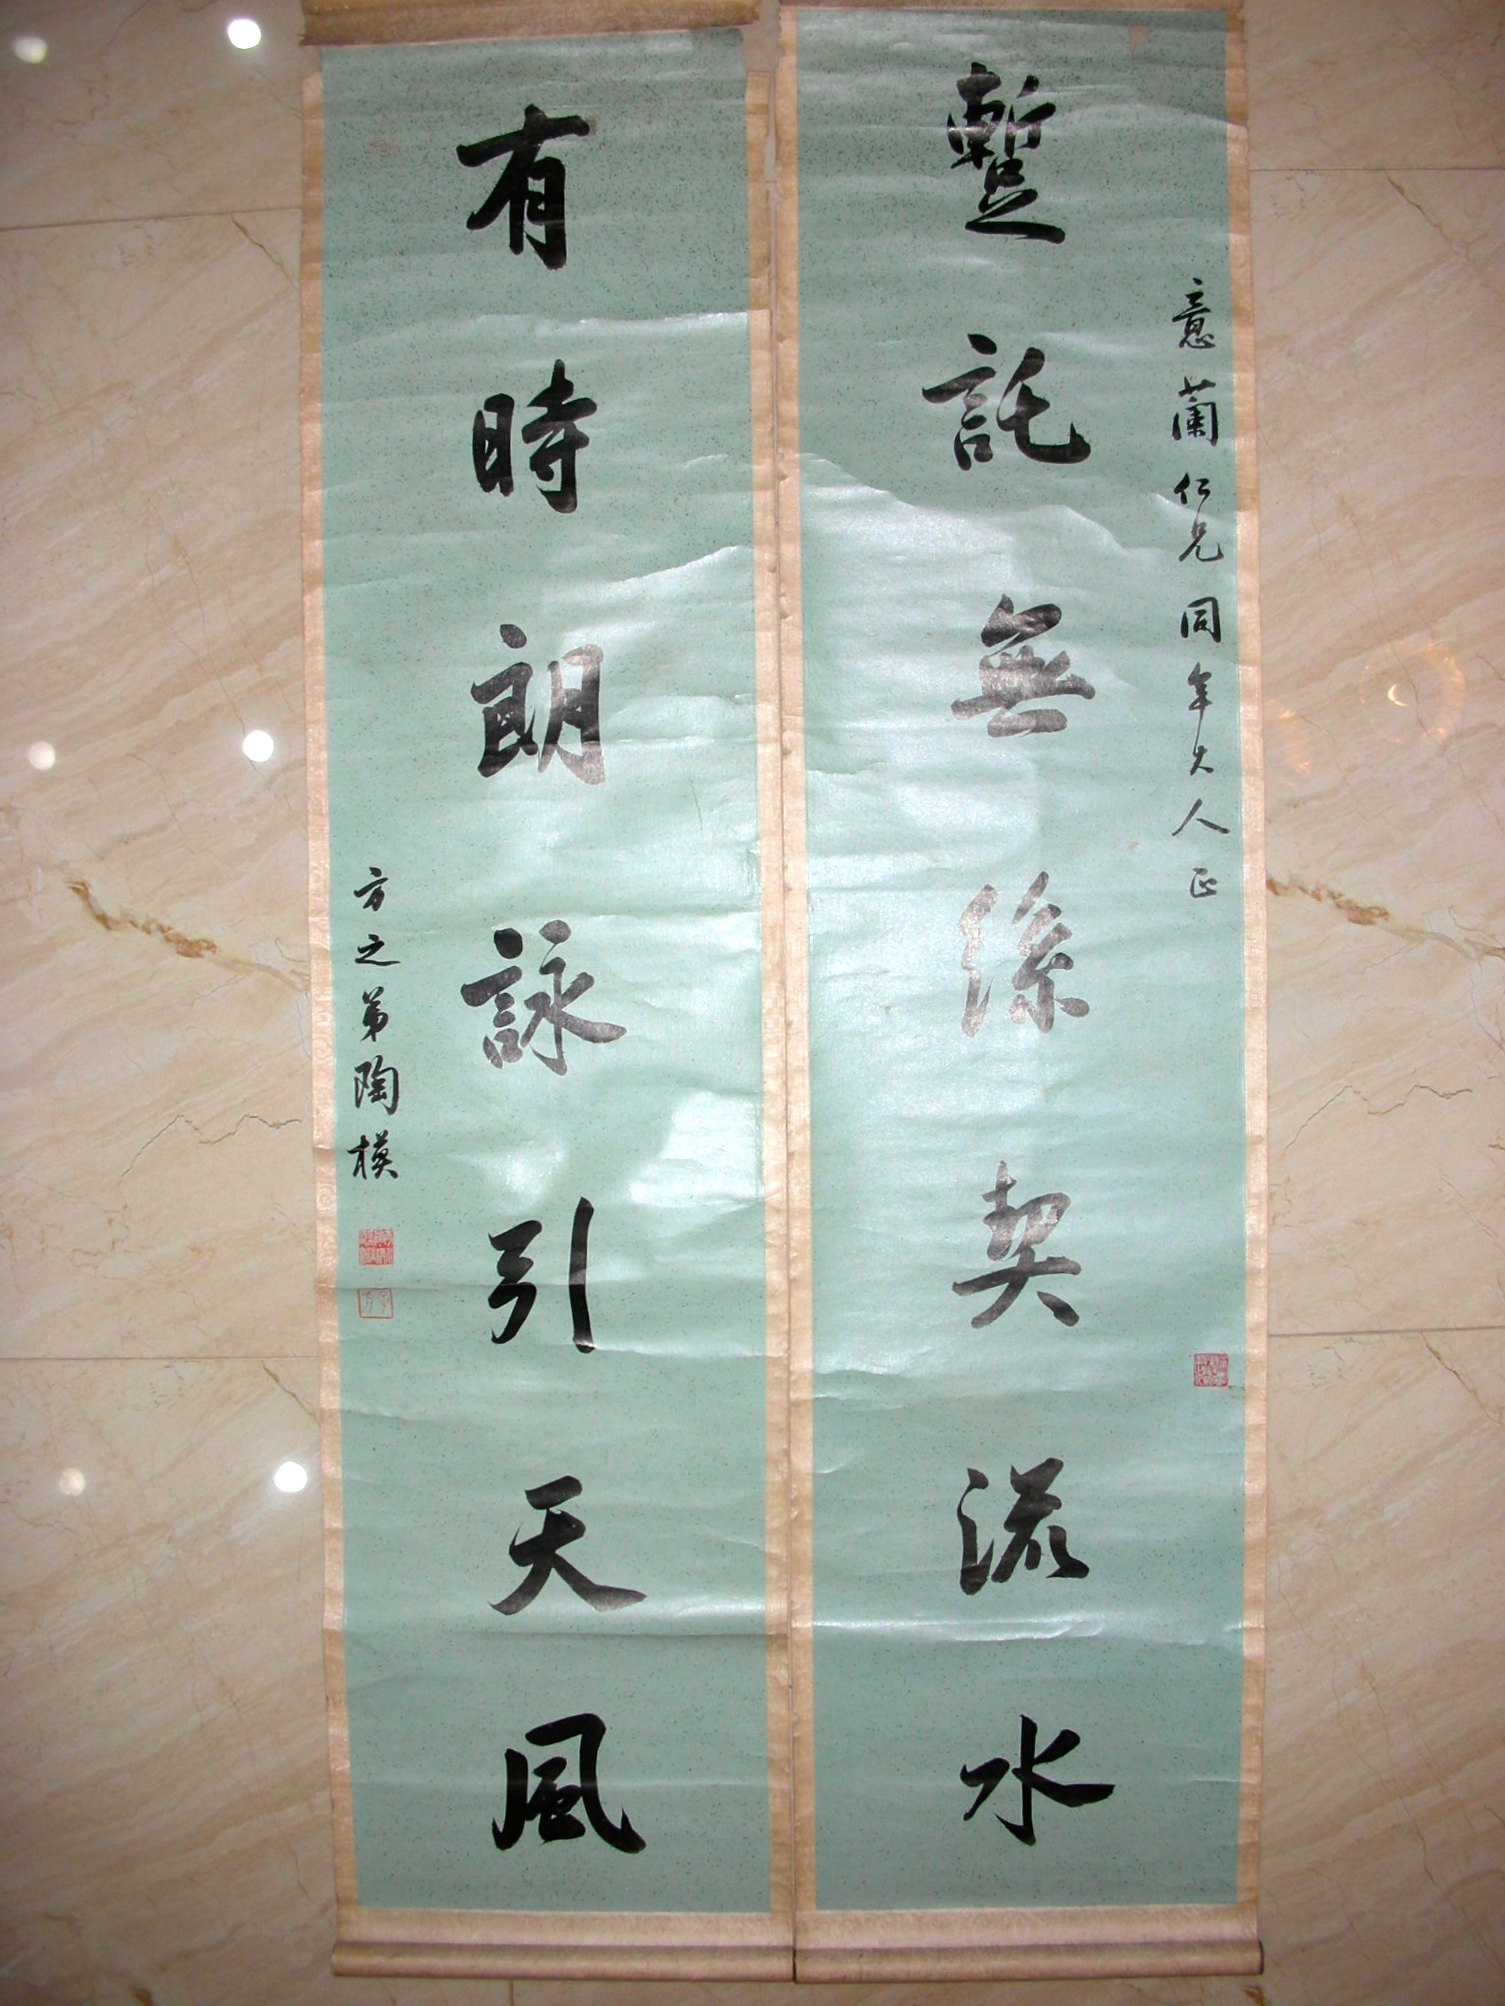 意蘭仁兄同年大人正
蹔託無係契流水
有時朗詠引天風
方之弟陶模